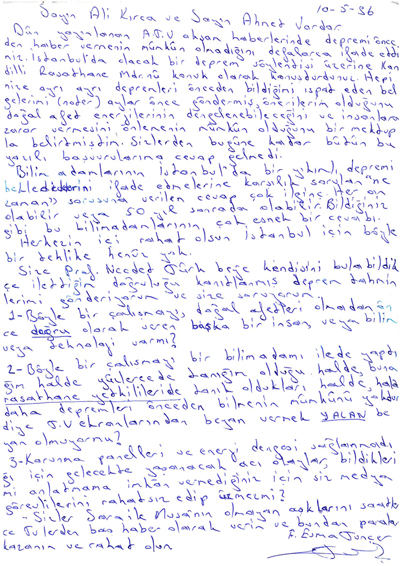 10-5-96
Sayın Ali Kırca ve Sayın Ahmet Vardar
Dün yayınlanan A.T.V akşam haberlerinde depremi önce
den haber vermenin mümkün olmadığını defalarca ifade ettini
niz. İstanbul'da olacak bir deprem söylendisi üzerine Kan
dilli Rasathane Mdr.nü konuk olarak konuşdurdunuz. Hepi
nize ayrı ayrı depremleri önceden bildiğini ispat eden bel
gelerimi (noter) aylar önce göndermiş, önerilerim olduğunu
doğal afet enerjilerinin dengelenebileceğini ve insanlara
zarar vermesini önlemenin mümkün olduğunu bir mektup
la belirtmiştim. Sizlerden bugüne kadar bütün bu
yazılı başvurularıma cevap gelmedi.
Bilim adamlarının İstanbul'da bir yıkımlı depremi
beklediklerini ifade etmelerine karşılık sorulan "ne
zaman" sorusuna verilen cevap çok ilginç. Her an
olabilir veya 50 yıl sonrada olabilir. Bildiğiniz
gibi bu bilimadamlarının çok esnek bir cevabı.
Herkezin içi rahat olsun İstanbul için böyle
bir tehlike henüz yok.
Size Prof. Necdet Türk beye kendisini bulabildik
çe ilettiğim doğruluğu kanıtlanmış deprem tahmin
lerimi gönderiyorum ve size soruyorum.
1-Böyle bir çalışmayı doğal afetleri olmadan ön
ce doğru olarak veren başka bir insan veya bilim
veya teknoloji varmı?
2-Böyle bir çalışmayı bir bilimadamı ilede yaptı
ğım halde yüzlercede tanığım olduğu halde, buna
rasathane yetkilileride tanık oldukları halde, hala
daha depremleri önceden bilmenin mümkünü yokdur
diye T.V ekranlarından beyan vermek YALAN be
yan olmuyormu?
3-Korunma panelleri ve enerji dengesi sağlanmadı
ğı için gelecekte yaşanacak acı olaylar, bildikleri
mi anlatmama imkân vermediğiniz için siz medya
görevlilerini rahatsız edip üzmezmi?
-Sizler Sara ile Musa'nın olmayan aşklarını saatler
ce Tv lerden baş haber olarak verin ve bundan paralar
kazanın ve rahat olun
F. Esma Tuncer